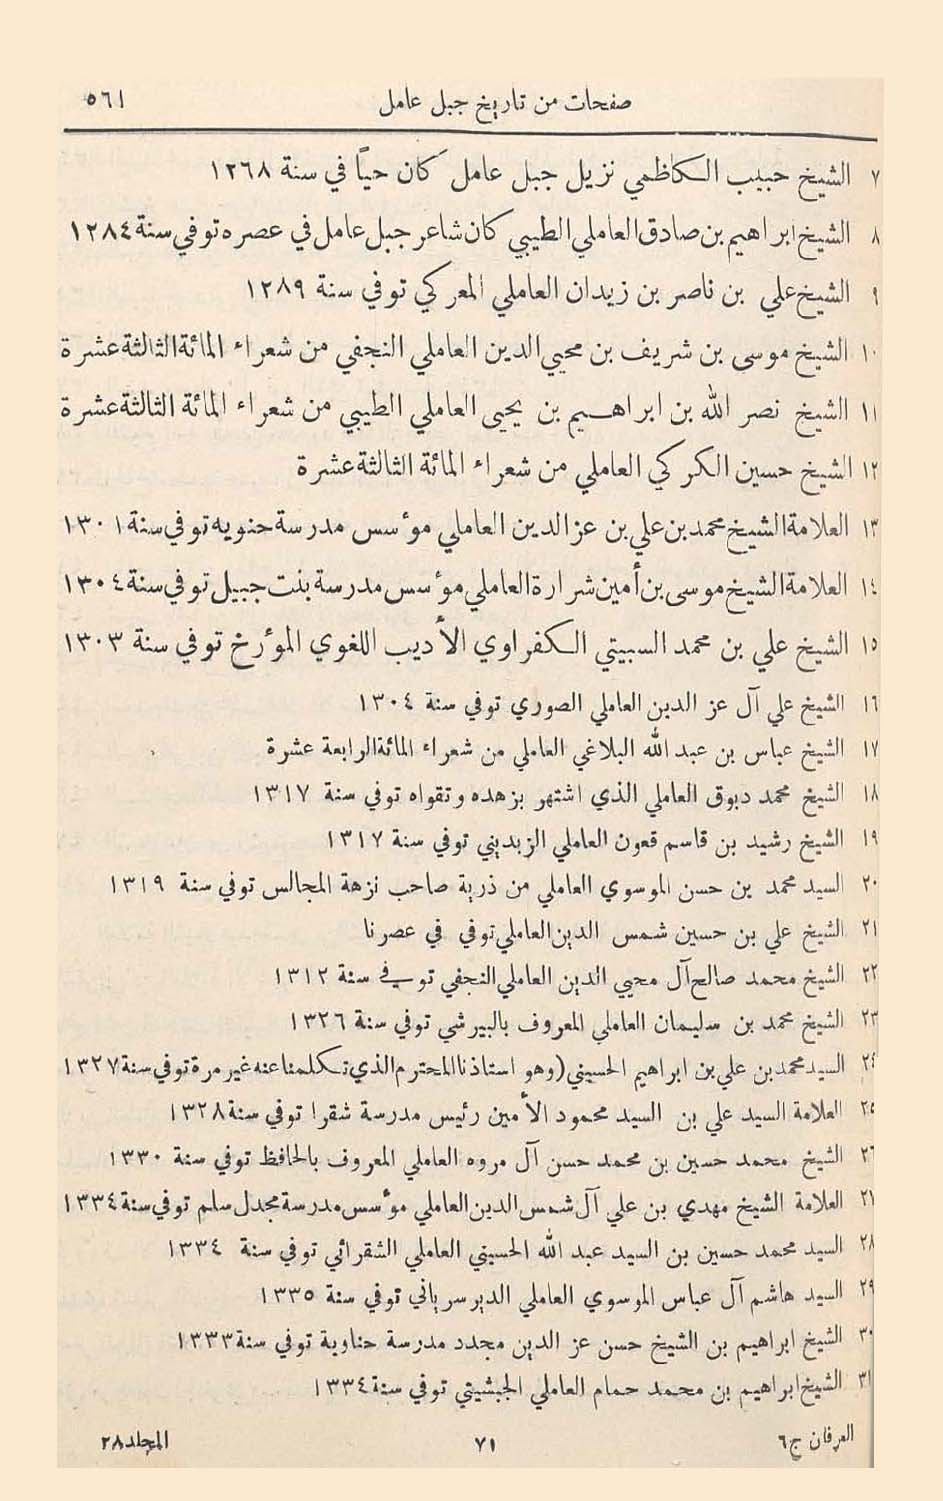 صفحات من تاريخ جبل عامل ٥٦١
٧ الشيخ حبيب الكاظمي نزيل جبل عامل كان حياً في سنة ١٢٦٨
٨ الشيخ ابراهيم بن صادق العاملي الطيبي كان شاعر جبل عامل في عصره توفي سنة ١٢٨٤
٩ الشيخ علي بن ناصر بن زيدان العاملي المعركي توفي سنة ١٢٨٩
١٠ الشيخ موسى بن شريف بن محيي الدين العاملي النجفي من شعراء المائة الثالثة عشرة
١١ الشيخ نصر الله بن ابراهيم بن يحيى العاملي الطيبي من شعراء المائة الثالثة عشرة
١٢ الشيخ حسين الكركي العاملي من شعراء المائة الثالثة عشرة
١٣ العلامة الشيخ محمد بن علي بن عز الدين العاملي مؤسس مدرسة حنويه توفي سنة ١٣٠١
١٤ العلامة الشيخ موسى بن أمين شرارة العاملي مؤسس مدرسة بنت جبيل توفي سنة ١٣٠٤
١٥ الشيخ علي بن محمد السبيتي الكفراوي الأديب اللغوي المؤرخ توفي سنة ١٣٠٣
١٦ الشيخ علي آل عز الدين العاملي الصوري توفي سنة ١٣٠٤
١٧ الشيخ عباس بن عبد الله البلاغي العاملي من شعراء المائة الرابعة عشرة
١٨ الشيخ محمد دبوق العاملي الذي اشتهر بزهده وتقواه توفي سنة ١٣١٧
١٩ الشيخ رشيد بن قاسم قعون العاملي الزبديني توفي سنة ١٣١٧
٢٠ السيد محمد بن حسن الموسوي العاملي من ذرية صاحب نزهة المجالس توفي سنة ١٣١٩
٢١ الشيخ علي بن حسين شمس الدين العاملي توفي في عصرنا
٢٢ الشيخ محمد صالح آل محيي الدين العاملي النجفي توفي سنة ١٣١٢
٢٣ الشيخ محمد بن سليمان العاملي المعروف بالبيرشي توفي سنة ١٣٢٦
٢٤ السيد محمد بن علي بن ابراهيم الحسيني (وهو استاذنا المحترم الذي تكلمنا عنه غير مرة توفي سنة ١٣٢٧
٢٥ العلامة السيد علي بن السيد محمود الأمين رئيس مدرسة شقرا توفي سنة ١٣٢٨
٢٦ الشيخ محمد حسين بن محمد حسن آل مروه العاملي المعروف بالحافظ توفي سنة ١٣٣٠
٢٧ العلامة الشيخ مهدي بن علي آل شمس الدين العاملي مؤسس مدرسة مجدل سلم توفي سنة ١٣٣٤
٢٨ السيد محمد حسين بن السيد عبد الله الحسيني العاملي الشقرائي توفي سنة ١٣٣٤
٢٩ السيد هاشم آل عباس الموسوي العاملي الديرسرياني توفي سنة ١٣٣٥
٣٠ الشيخ ابراهيم بن الشيخ حسن عز الدين مجدد مدرسة حناوية توفي سنة ١٣٣٣
٣١ الشيخ ابراهيم بن محمد حمام العاملي الجبشيتي توفي سنة ١٣٣٤
العرفان ج٦ ٧١ المجلد ٢٨